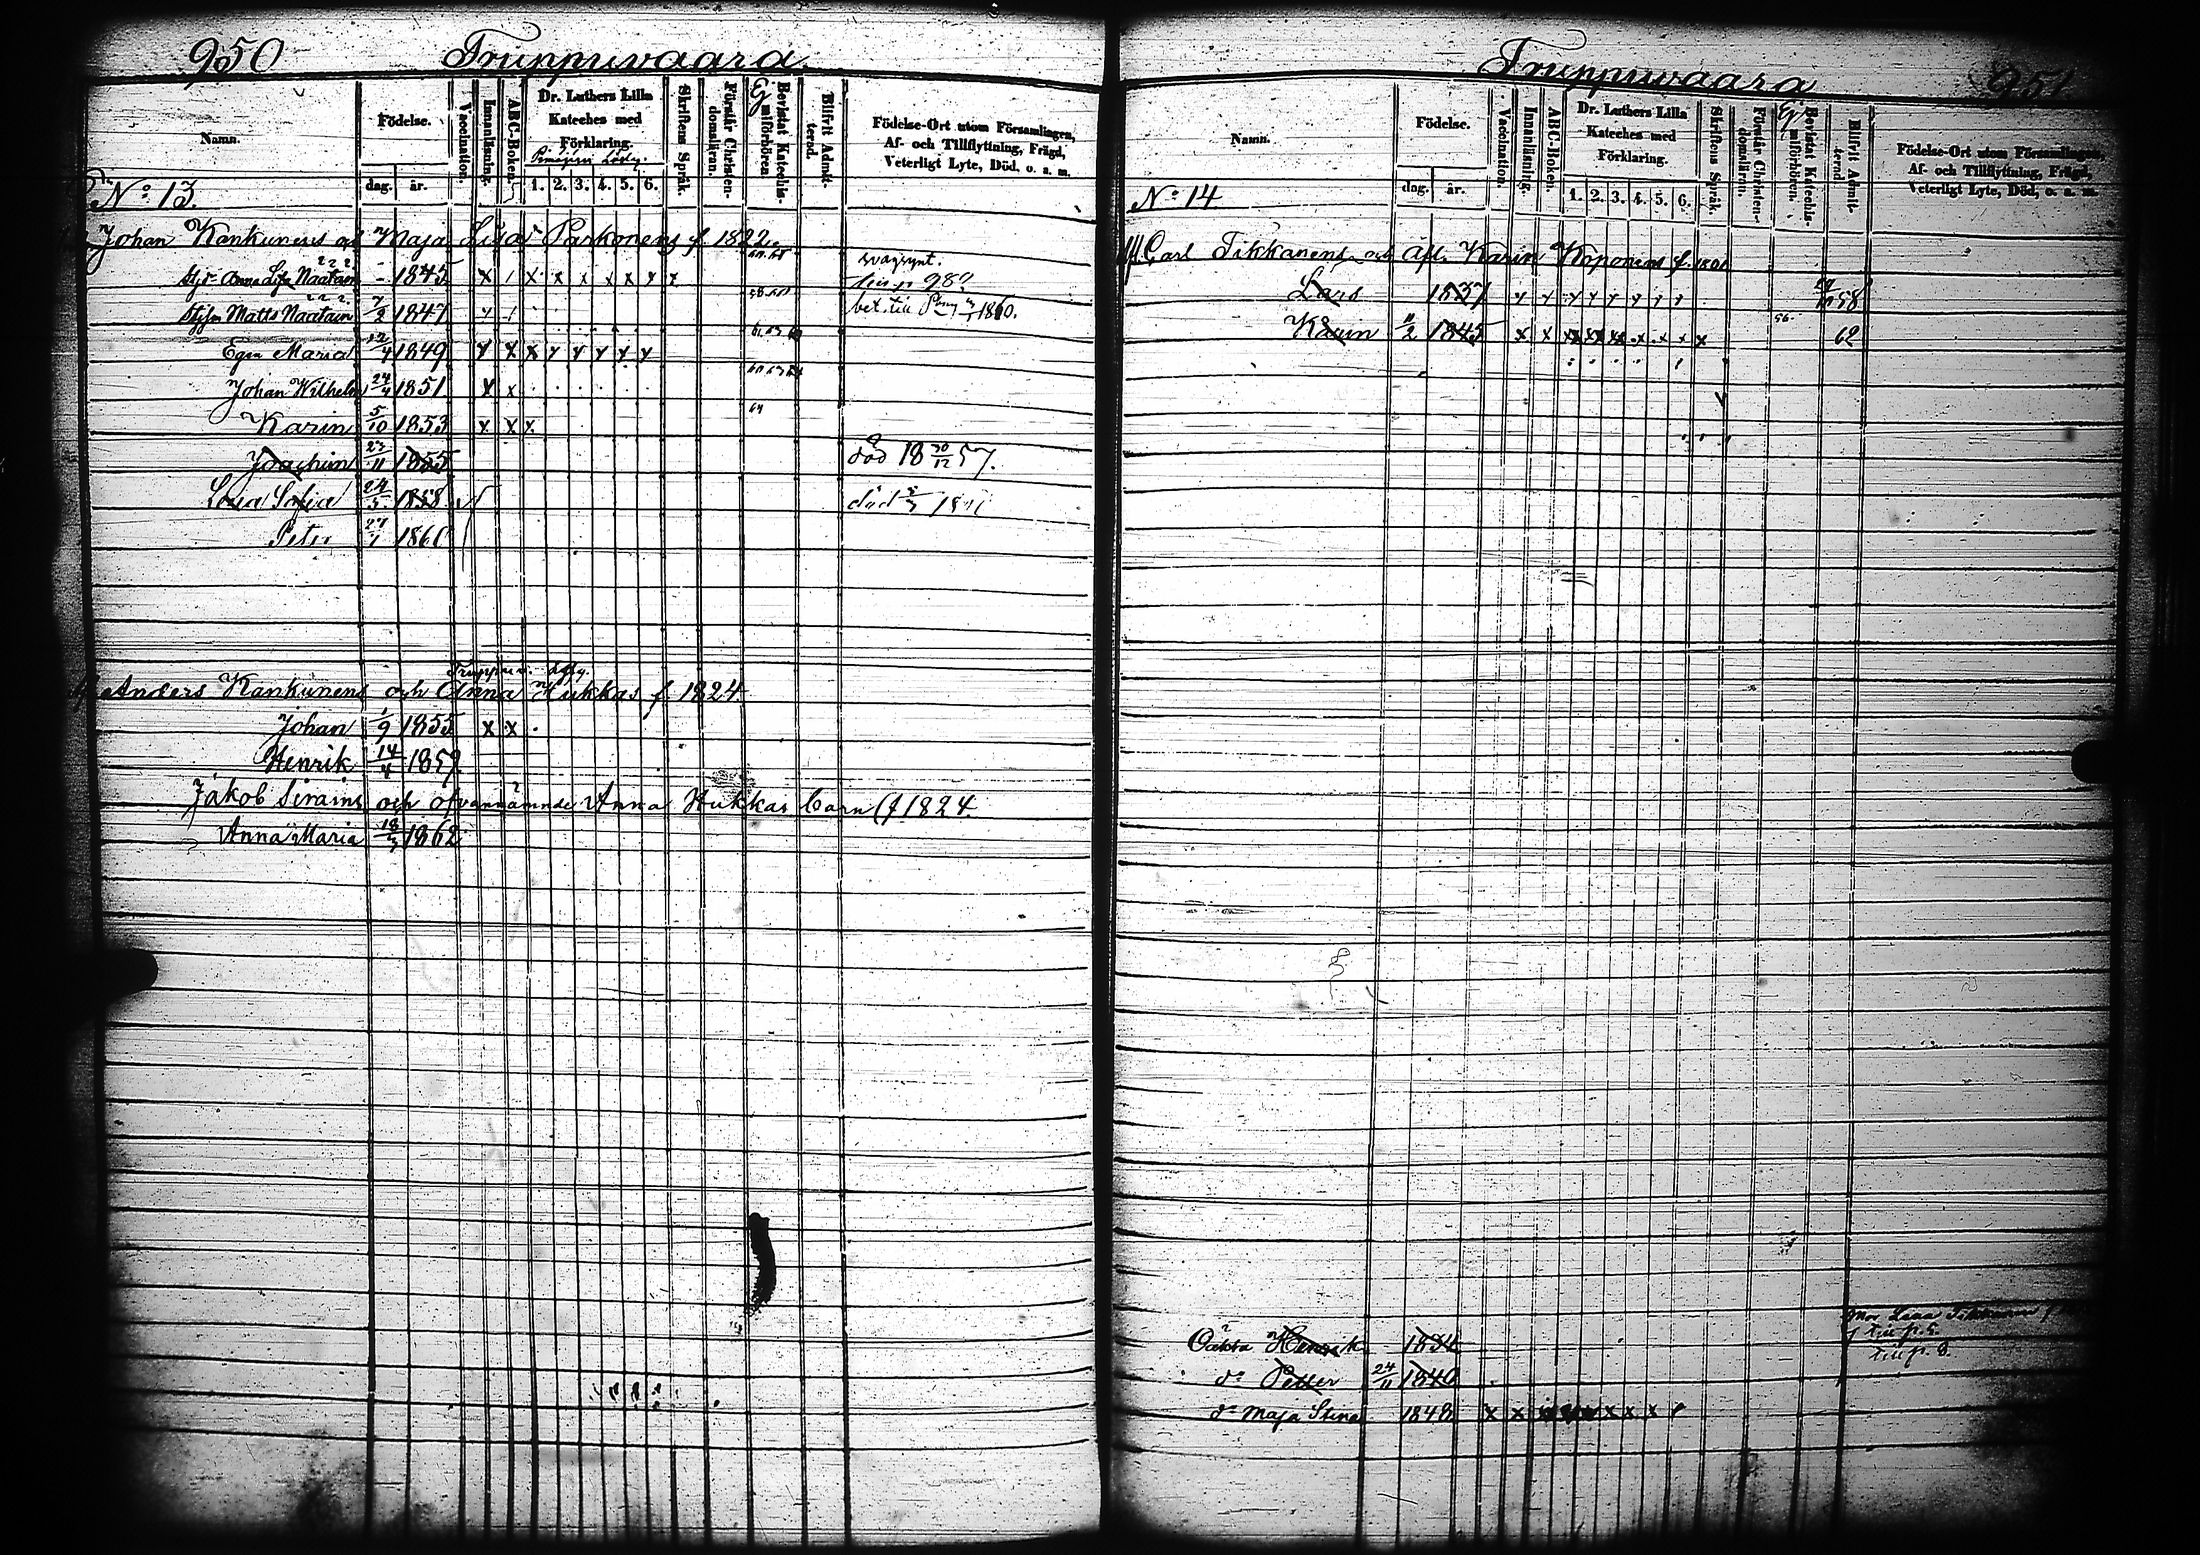 950 Truppuvaara
Namn.
Födelse.
dag. år.
Vaccination.
Innanläsning.
ABC-Boken.
Dr. Luthers Lilla Kateches med Förklaring.
1. 2. 3. 4. 5. 6.
Skriftens Språk.
Förstår Christendomsläran.
Ej
Bevistat Katechismiförhören
Blifvit Admitterad.
Födelse-Ort utom Församlingen, Af- och Tillflyttning, Frägd, Veterligt Lyte, Död, o. s. m.
No 13.
Johan Kankunens och Maja Lisa Parkonens f. 1822.
Anna Lisa 1845 x x x x x x svagsynt.
Matts 7/2 1847 58.60 bet. till 1860.
Egen Maria 1849 x x x
Johan Wilhelm 24/4 1851 x x
Karin 5/10 1853 x x x 64
Joachim 23/11 1855 död 18 30/12 57.
Lovisa Sofia 24/5 1858 död
Peter 1861
Anders Kankunens och Anna Hukkas f. 1824.
Johan 1/9 1855 x x
Henrik 14/4 1859
Jakob Sirains och ofvannämnde Anna Hukkas barn (f 1824.
Anna Maria 1862
Truppuvaara 951
Namn.
Födelse.
dag. år.
Vaccination.
Innanläsning.
ABC-Boken.
Dr. Luthers Lilla Kateches med Förklaring.
1. 2. 3. 4. 5. 6.
Skriftens Språk.
Förstår Christendomsläran.
Ej
Bevistat Katechismiförhören.
Blifvit Admitterad.
Födelse-Ort utom Församlingen, Af- och Tillflyttning, Frägd, Veterligt Lyte, Död, o. s. m.
No 14
Carl Tikkanens och Afl. Karin Koponens f. 1801
Lars 1837 58
Karin 11/2 1845 x x x x x x x x x 62
Oäkta Henrik 1834
do Petter 24/11 1840
do Maja Stina 1848 x x x x x